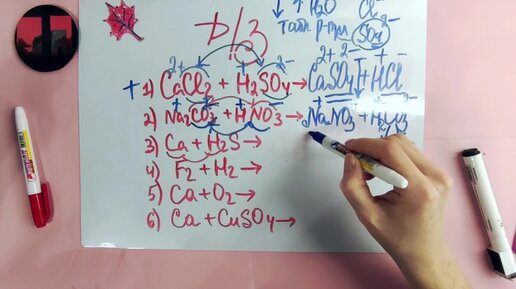 ↓ ↑ H₂O Cl⁻
Табл. р-рим SO₄²⁻
D/З
+ 1) CaCl₂ + H₂SO₄ → CaSO₄↓ + HCl
2) Na₂CO₃ + HNO₃ → NaNO₃ + H₂CO₃
3) Ca + H₂S →
4) F₂ + H₂ →
5) Ca + O₂ →
6) Ca + CuSO₄ →